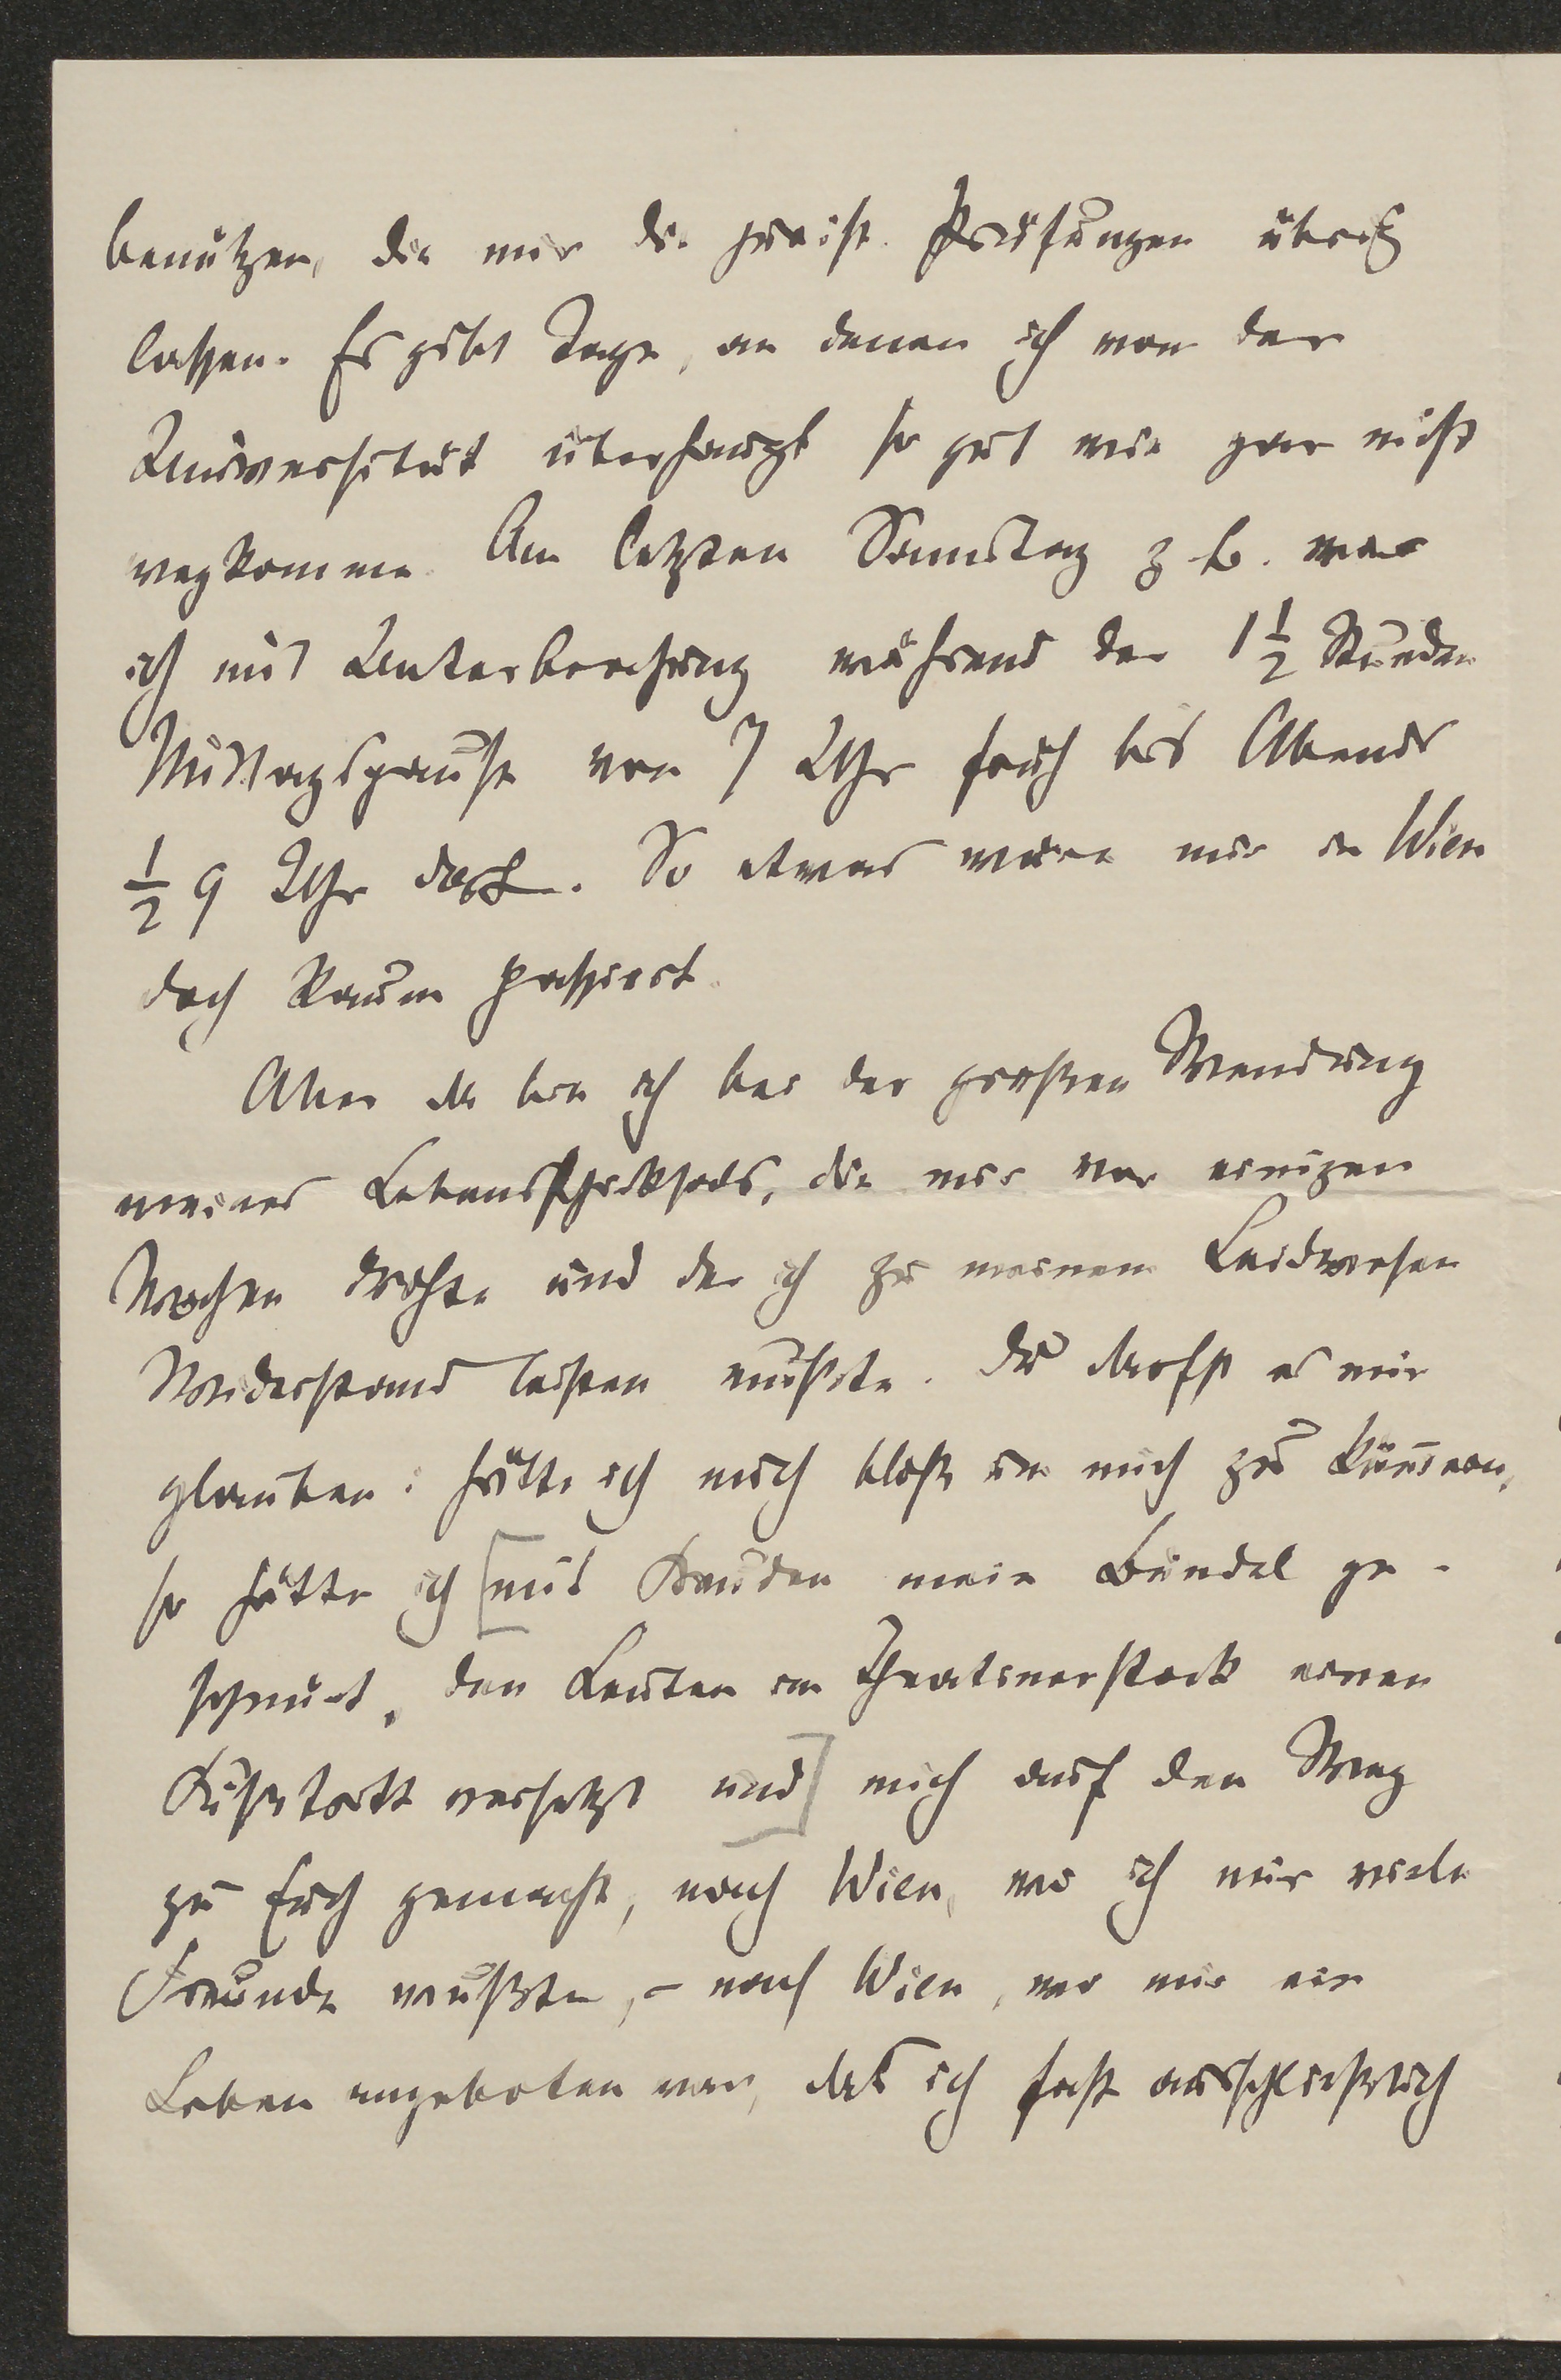 benützen, die mir die jurist. Prüfungen übrig
lassen. Es gibt Tage, an denen ich von der
Universität überhaupt so gut wie gar nicht
wegkomme. Am letzten Samstag z. B. war
ich mit Unterbrechung während der 1 1/2 Stunden
Mittagspause von 7 Uhr früh bis Abends
1/2 9 Uhr dort. So etwas wäre mir in Wien
doch kaum passiert.
Aber da bin ich bei der großen Wendung
meines Lebensschicksals, die mir vor einigen
Wochen drohte und der ich zu meinem Leidwesen
Widerstand leisten mußte. Du darfst es mir
glauben: hätte ich mich bloß um mich zu kümmern,
so hätte ich [mit Freuden mein Bündel ge-
schnürt, den Leuten im Theatinerstock einen
Fußtritt versetzt und] mich auf den Weg
zu Euch gemacht, nach Wien, wo ich mir viele
Freunde wußte, – nach Wien, wo mir ein
Leben angeboten war, das ich fast ausschließlich